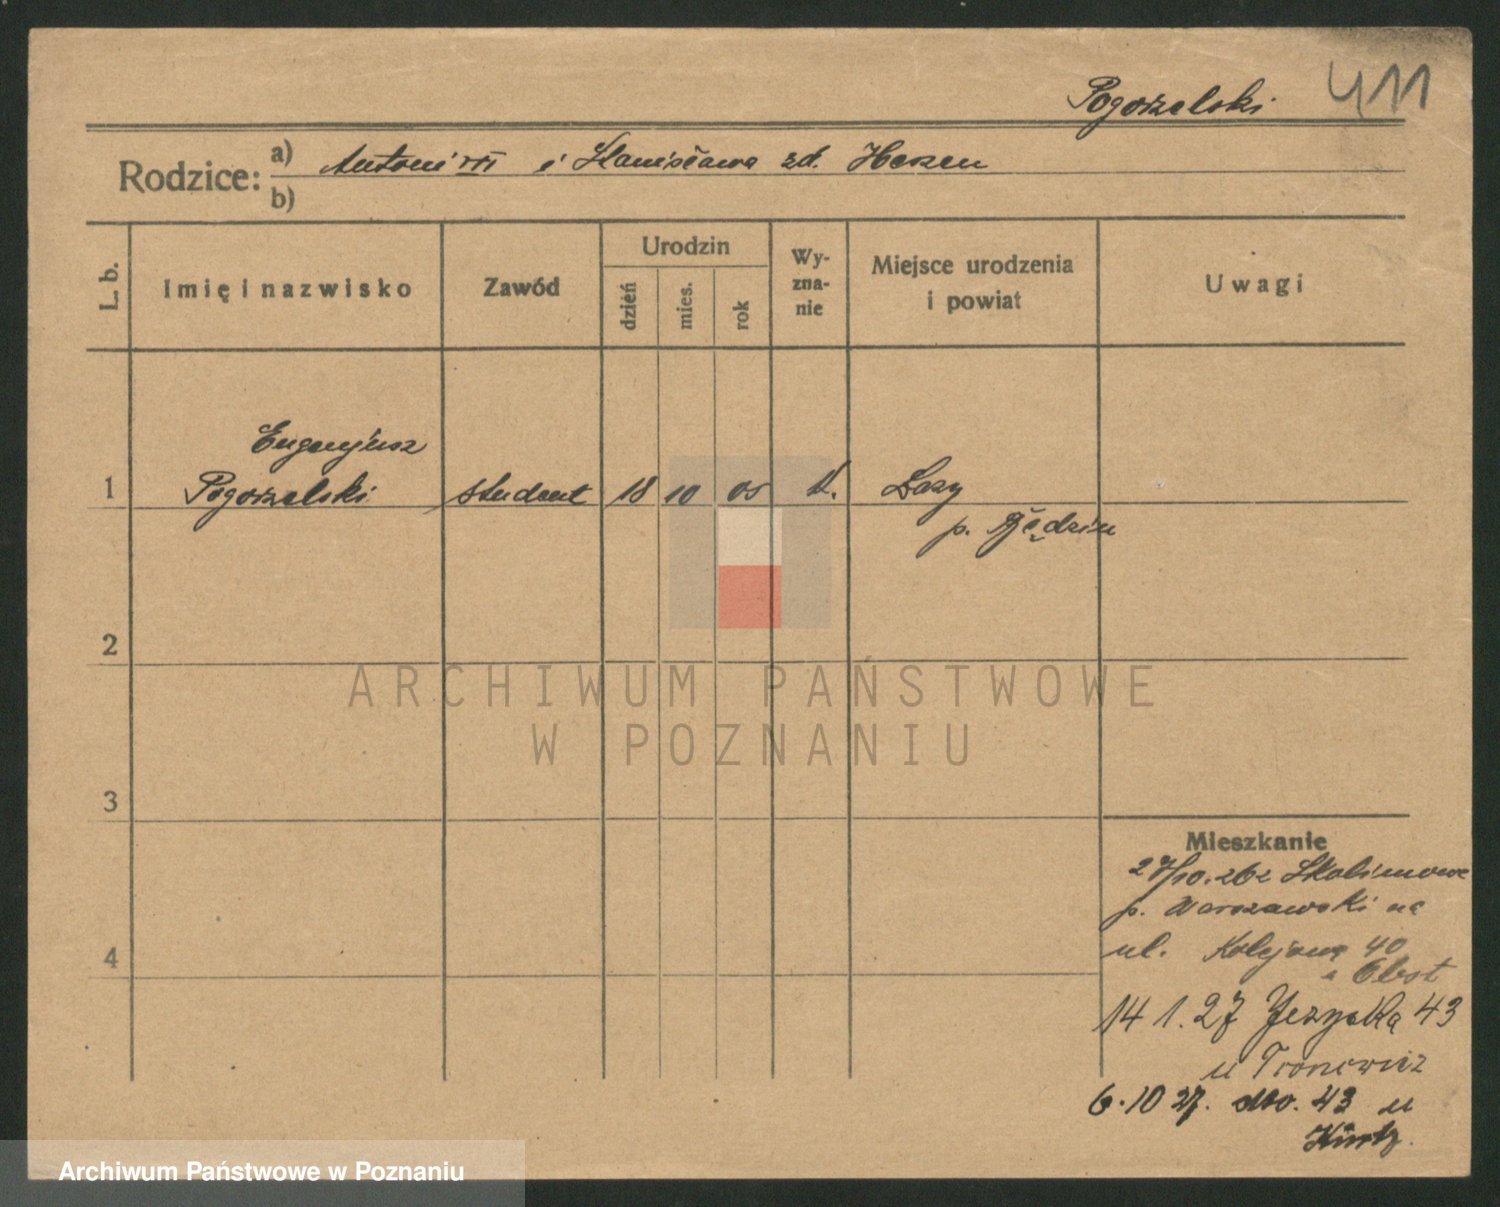 Pogorzelski 411
Rodzice: a) Antoni i Stanisława zd.
b)
L. b.
Imię i nazwisko
Zawód
Urodzin
dzień
mies.
rok
Wy-
zna-
nie
Miejsce urodzenia
i powiat
Uwagi
Eugenjusz
1 Pogorzelski student 18 10 05 k. Łazy
p. Będzin
2
3
4
ARCHIWUM PAŃSTWOWE
W POZNANIU
Mieszkanie
27/10.26 z Skolimowa
p. Warszawski na
ul. Kolejową 40
14 1. 27 Jeżycką 43
u
6. 10 27. dto. 43 u
Archiwum Państwowe w Poznaniu